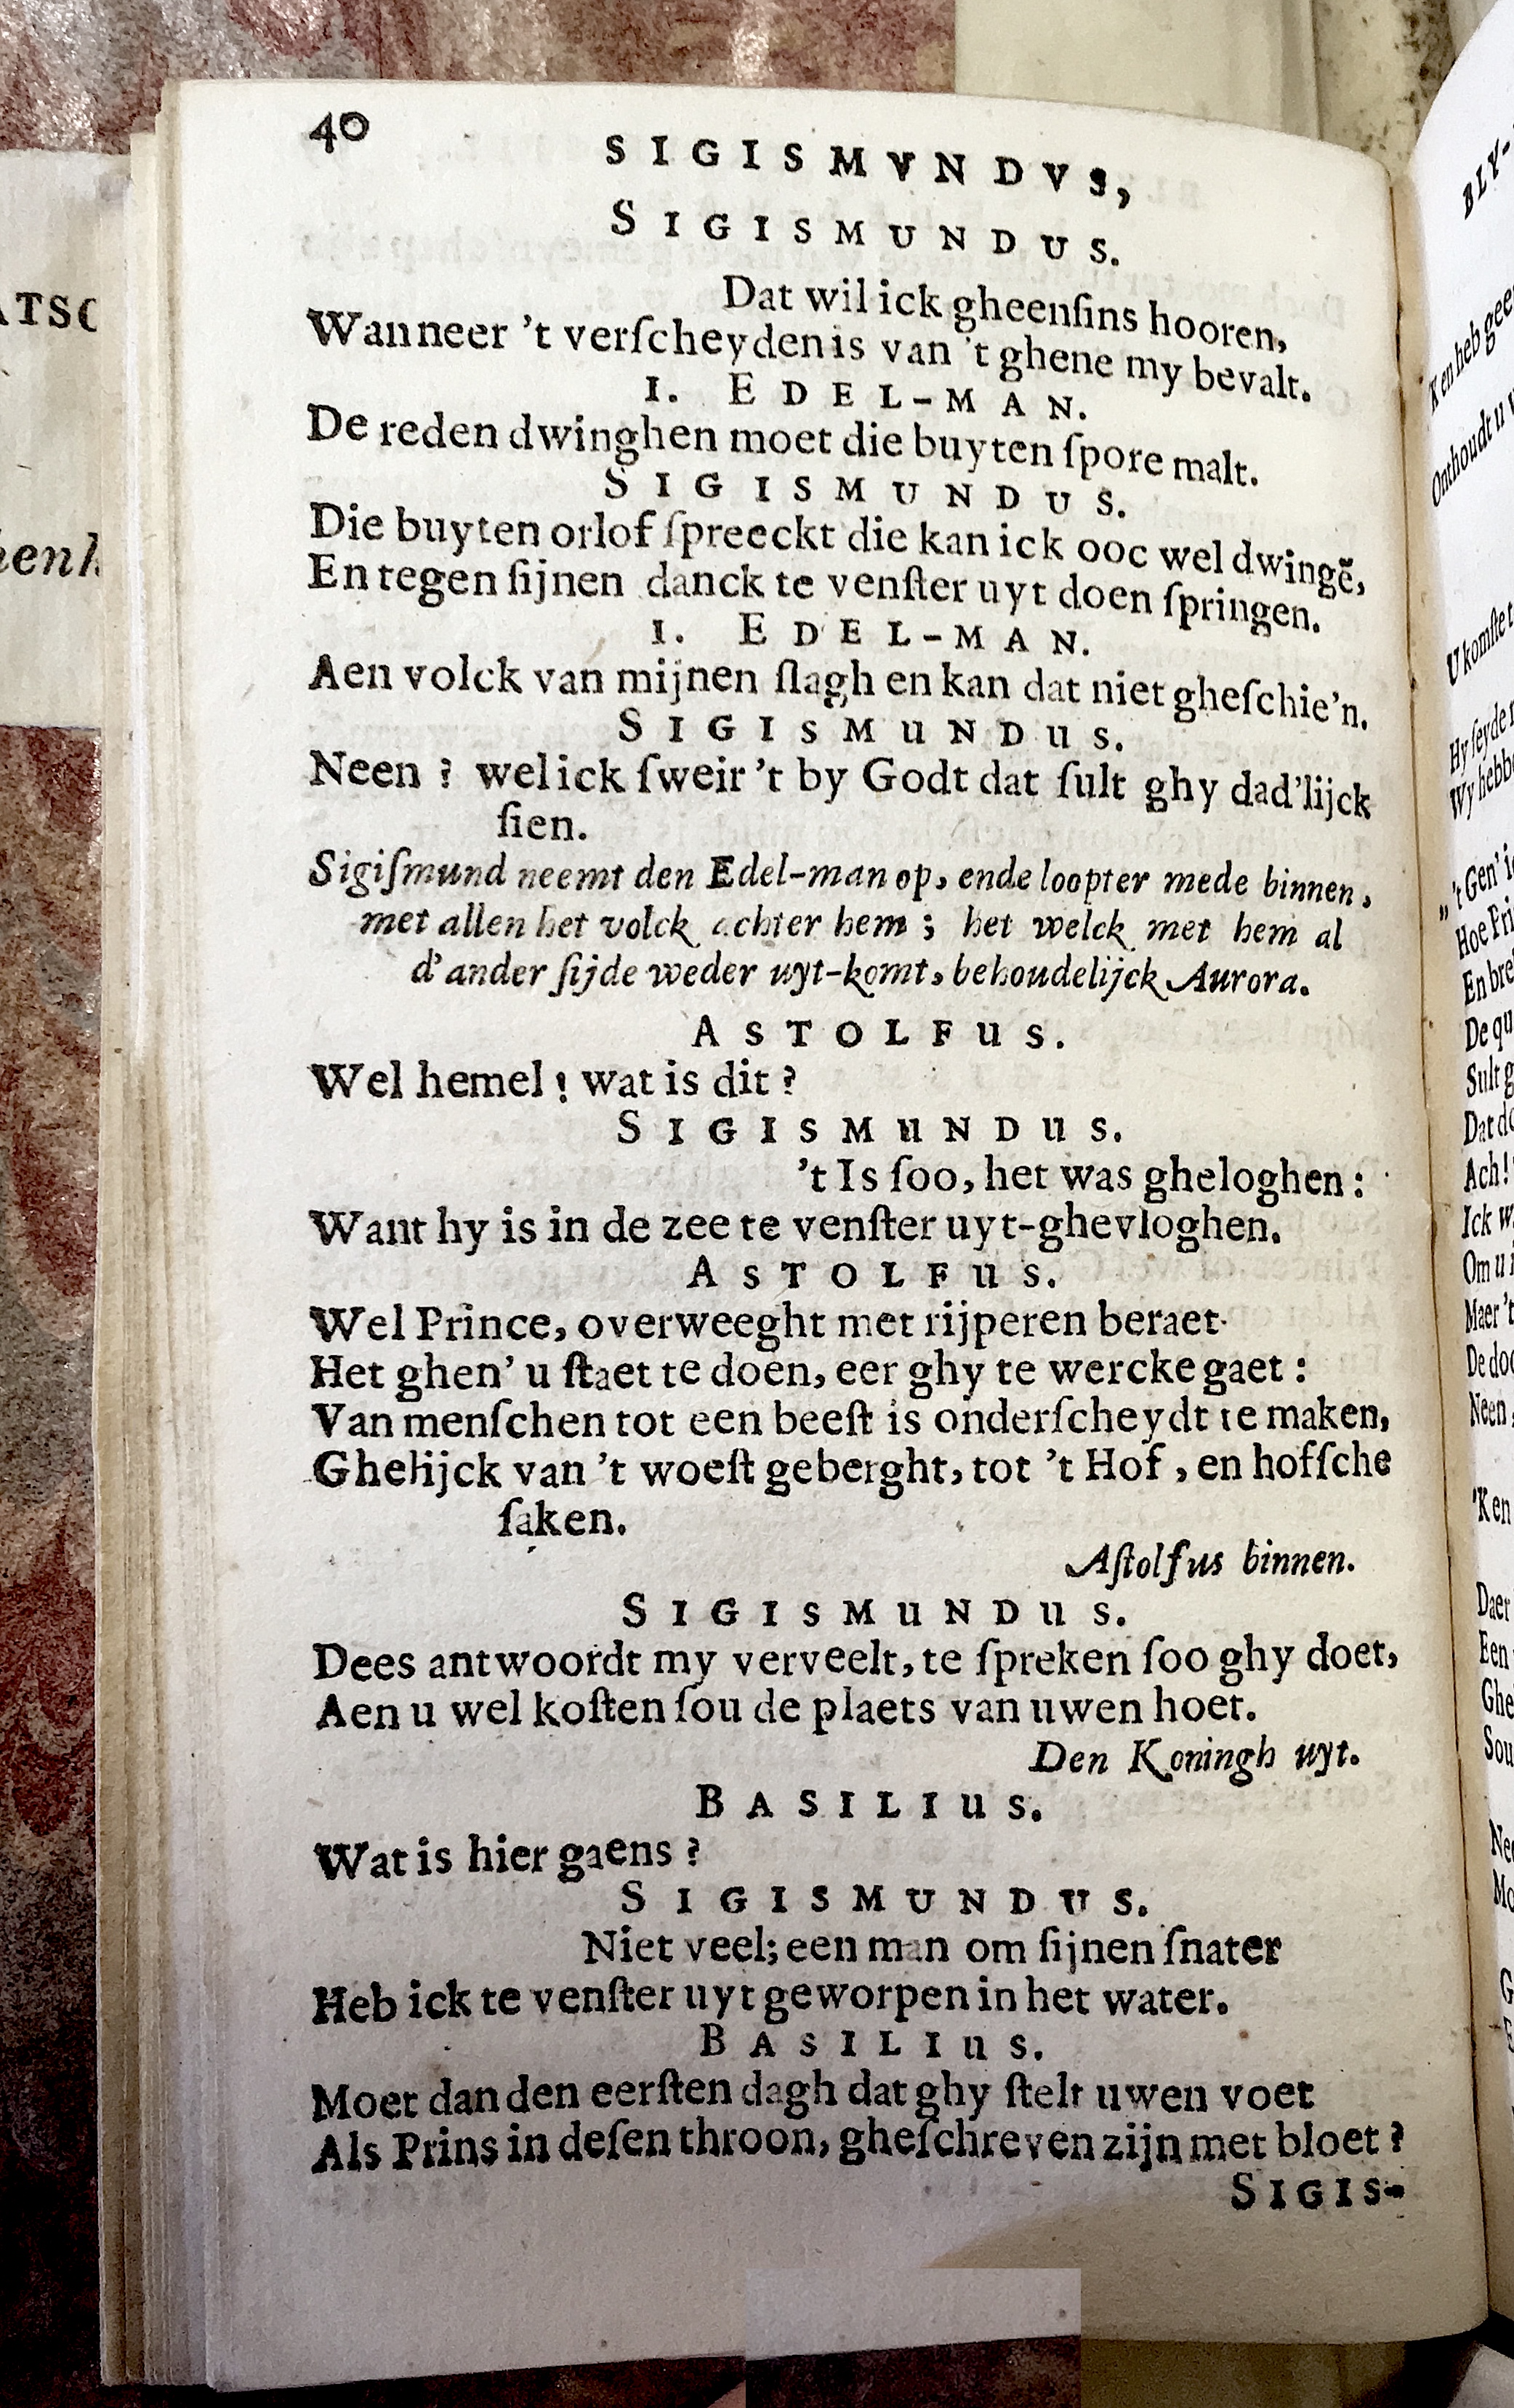 40
SIGISMVNDVS,
SIGISMUNDUS.
Dat wil ick gheenſins hooren,
Wanneer 't verſcheyden is van 't ghene my bevalt.
1. EDEL-MAN.
De reden dwinghen moet die buyten ſpore malt.
SIGISMUNDUS.
Die buyten orlof ſpreeckt die kan ick ooc wel dwingē,
En tegen ſijnen danck te venſter uyt doen ſpringen.
1. EDEL-MAN.
Aen volck van mijnen ſlagh en kan dat niet gheſchie'n.
SIGISMUNDUS.
Neen ? wel ick ſweir 't by Godt dat ſult ghy dad'lijck
ſien.
Sigiſmund neemt den Edel-man op, ende loopter mede binnen,
met allen het volck achter hem ; het welck met hem al
d'ander ſijde weder uyt-komt, behoudelijck Aurora.
ASTOLFUS.
Wel hemel ! wat is dit ?
SIGISMUNDUS.
't Is ſoo, het was gheloghen :
Want hy is in de zee te venſter uyt-ghevloghen.
ASTOLFUS.
Wel Prince, overweeght met rijperen beraet
Het ghen' u ſtaet te doen, eer ghy te wercke gaet :
Van menſchen tot een beeſt is onderſcheydt te maken,
Ghelijck van 't woeſt geberght, tot 't Hof, en hofſche
ſaken.
Aſtolfus binnen.
SIGISMUNDUS.
Dees antwoordt my verveelt, te ſpreken ſoo ghy doet,
Aen u wel koſten ſou de plaets van uwen hoet.
Den Koningh uyt.
BASILIUS.
Wat is hier gaens ?
SIGISMUNDUS.
Niet veel; een man om ſijnen ſnater
Heb ick te venſter uyt geworpen in het water.
BASILIUS.
Moet dan den eerſten dagh dat ghy ſtelt uwen voet
Als Prins in deſen throon, gheſchreven zijn met bloet ?
SIGIS-
ATSC
henk
BLY-
K en heb gee
Onthoudt u
U komſte t
Hy ſeyde
Wy hebb
„ 't Gen' i
Hoe Pri
En bre
De qu
Sult g
Dat do
Ach!
Ick w
Om u i
Maer 't
De doo
Neen,
'K en
Daer
Een
Ghe
Sou
Nee
Mo
G